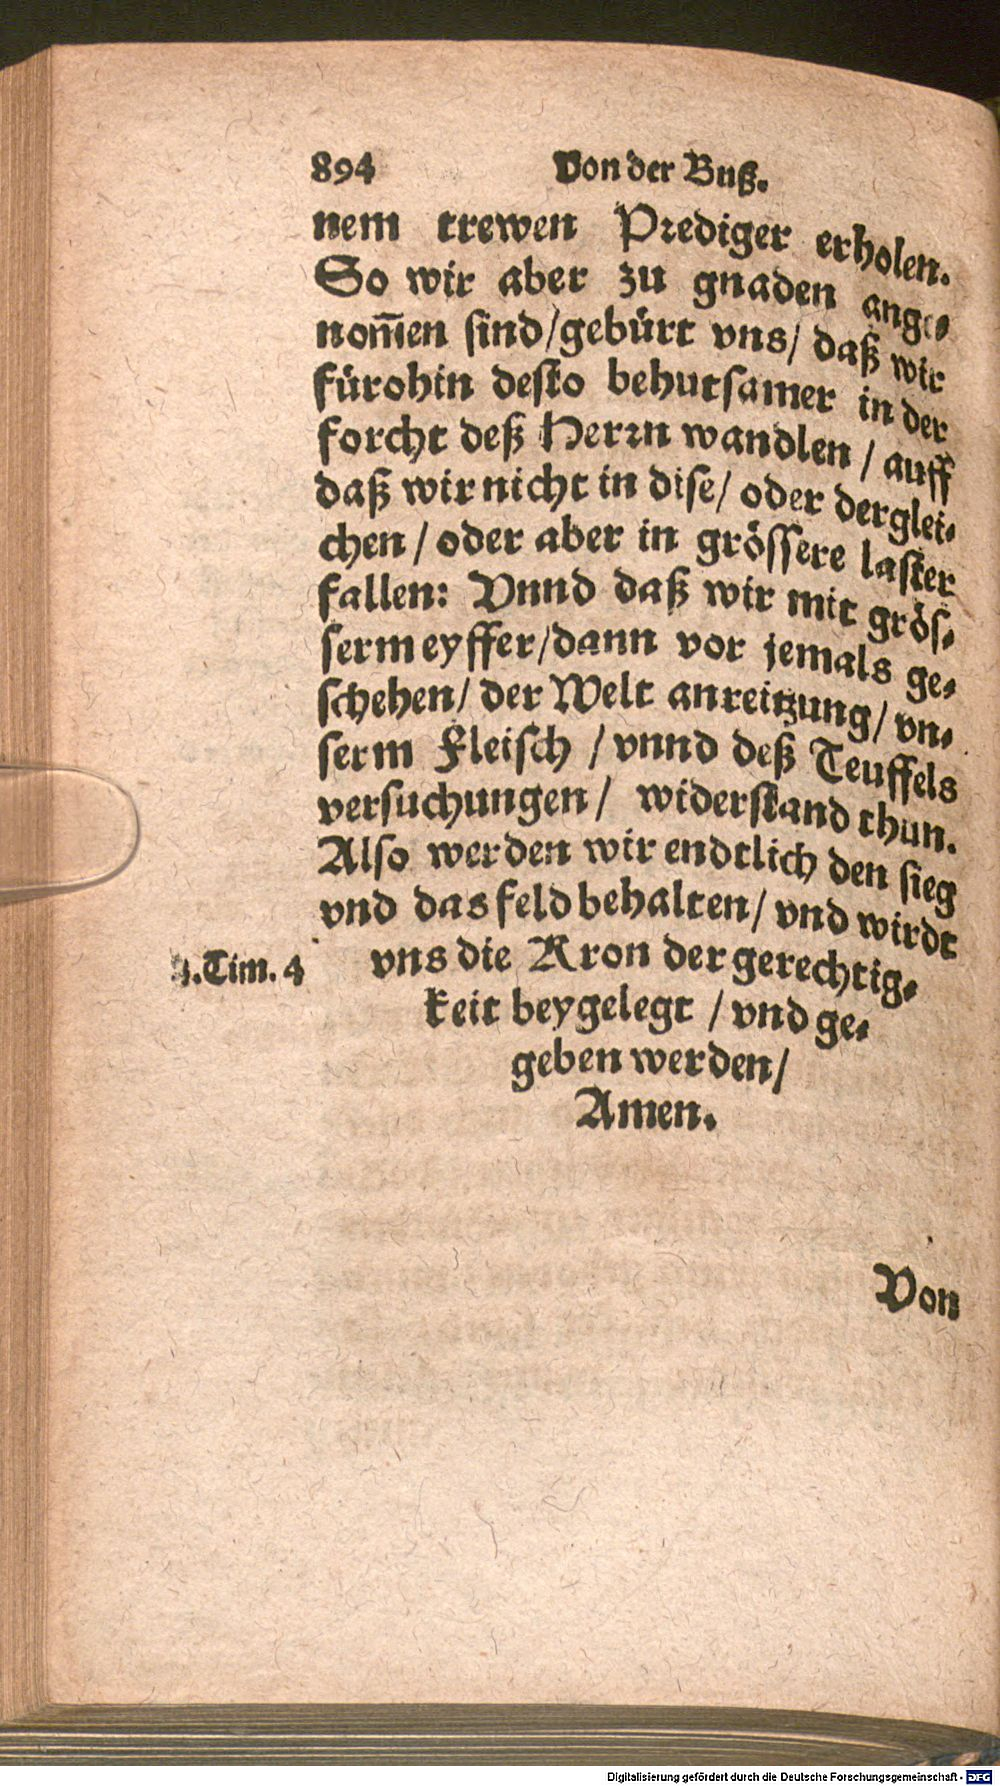 894 Von der Buß.
nem trewen Prediger erholen.
So wir aber zu gnaden ange⸗
nom̃en sind/gebürt vns/ daß wir
fürohin desto behutsamer in der
forcht deß Herrn wandlen / auff
daß wir nicht in dise/ oder derglei⸗
chen / oder aber in grössere laster
fallen: Vnnd daß wir mit grös⸗
serm eyffer/dann vor jemals ge⸗
schehen/ der Welt anreitzung/ vn⸗
serm Fleisch / vnnd deß Teuffels
versuchungen / widerstand thun.
Also werden wir endtlich den sieg
vnd das feld behalten/ vnd wirdt
vns die Kron der gerechtig⸗
.Tim. 4
keit beygelegt / vnd ge⸗
geben werden/
Amen.
Von
Digitalisierung gefördert durch die Deutsche Forschungsgemeinschaft - DFG